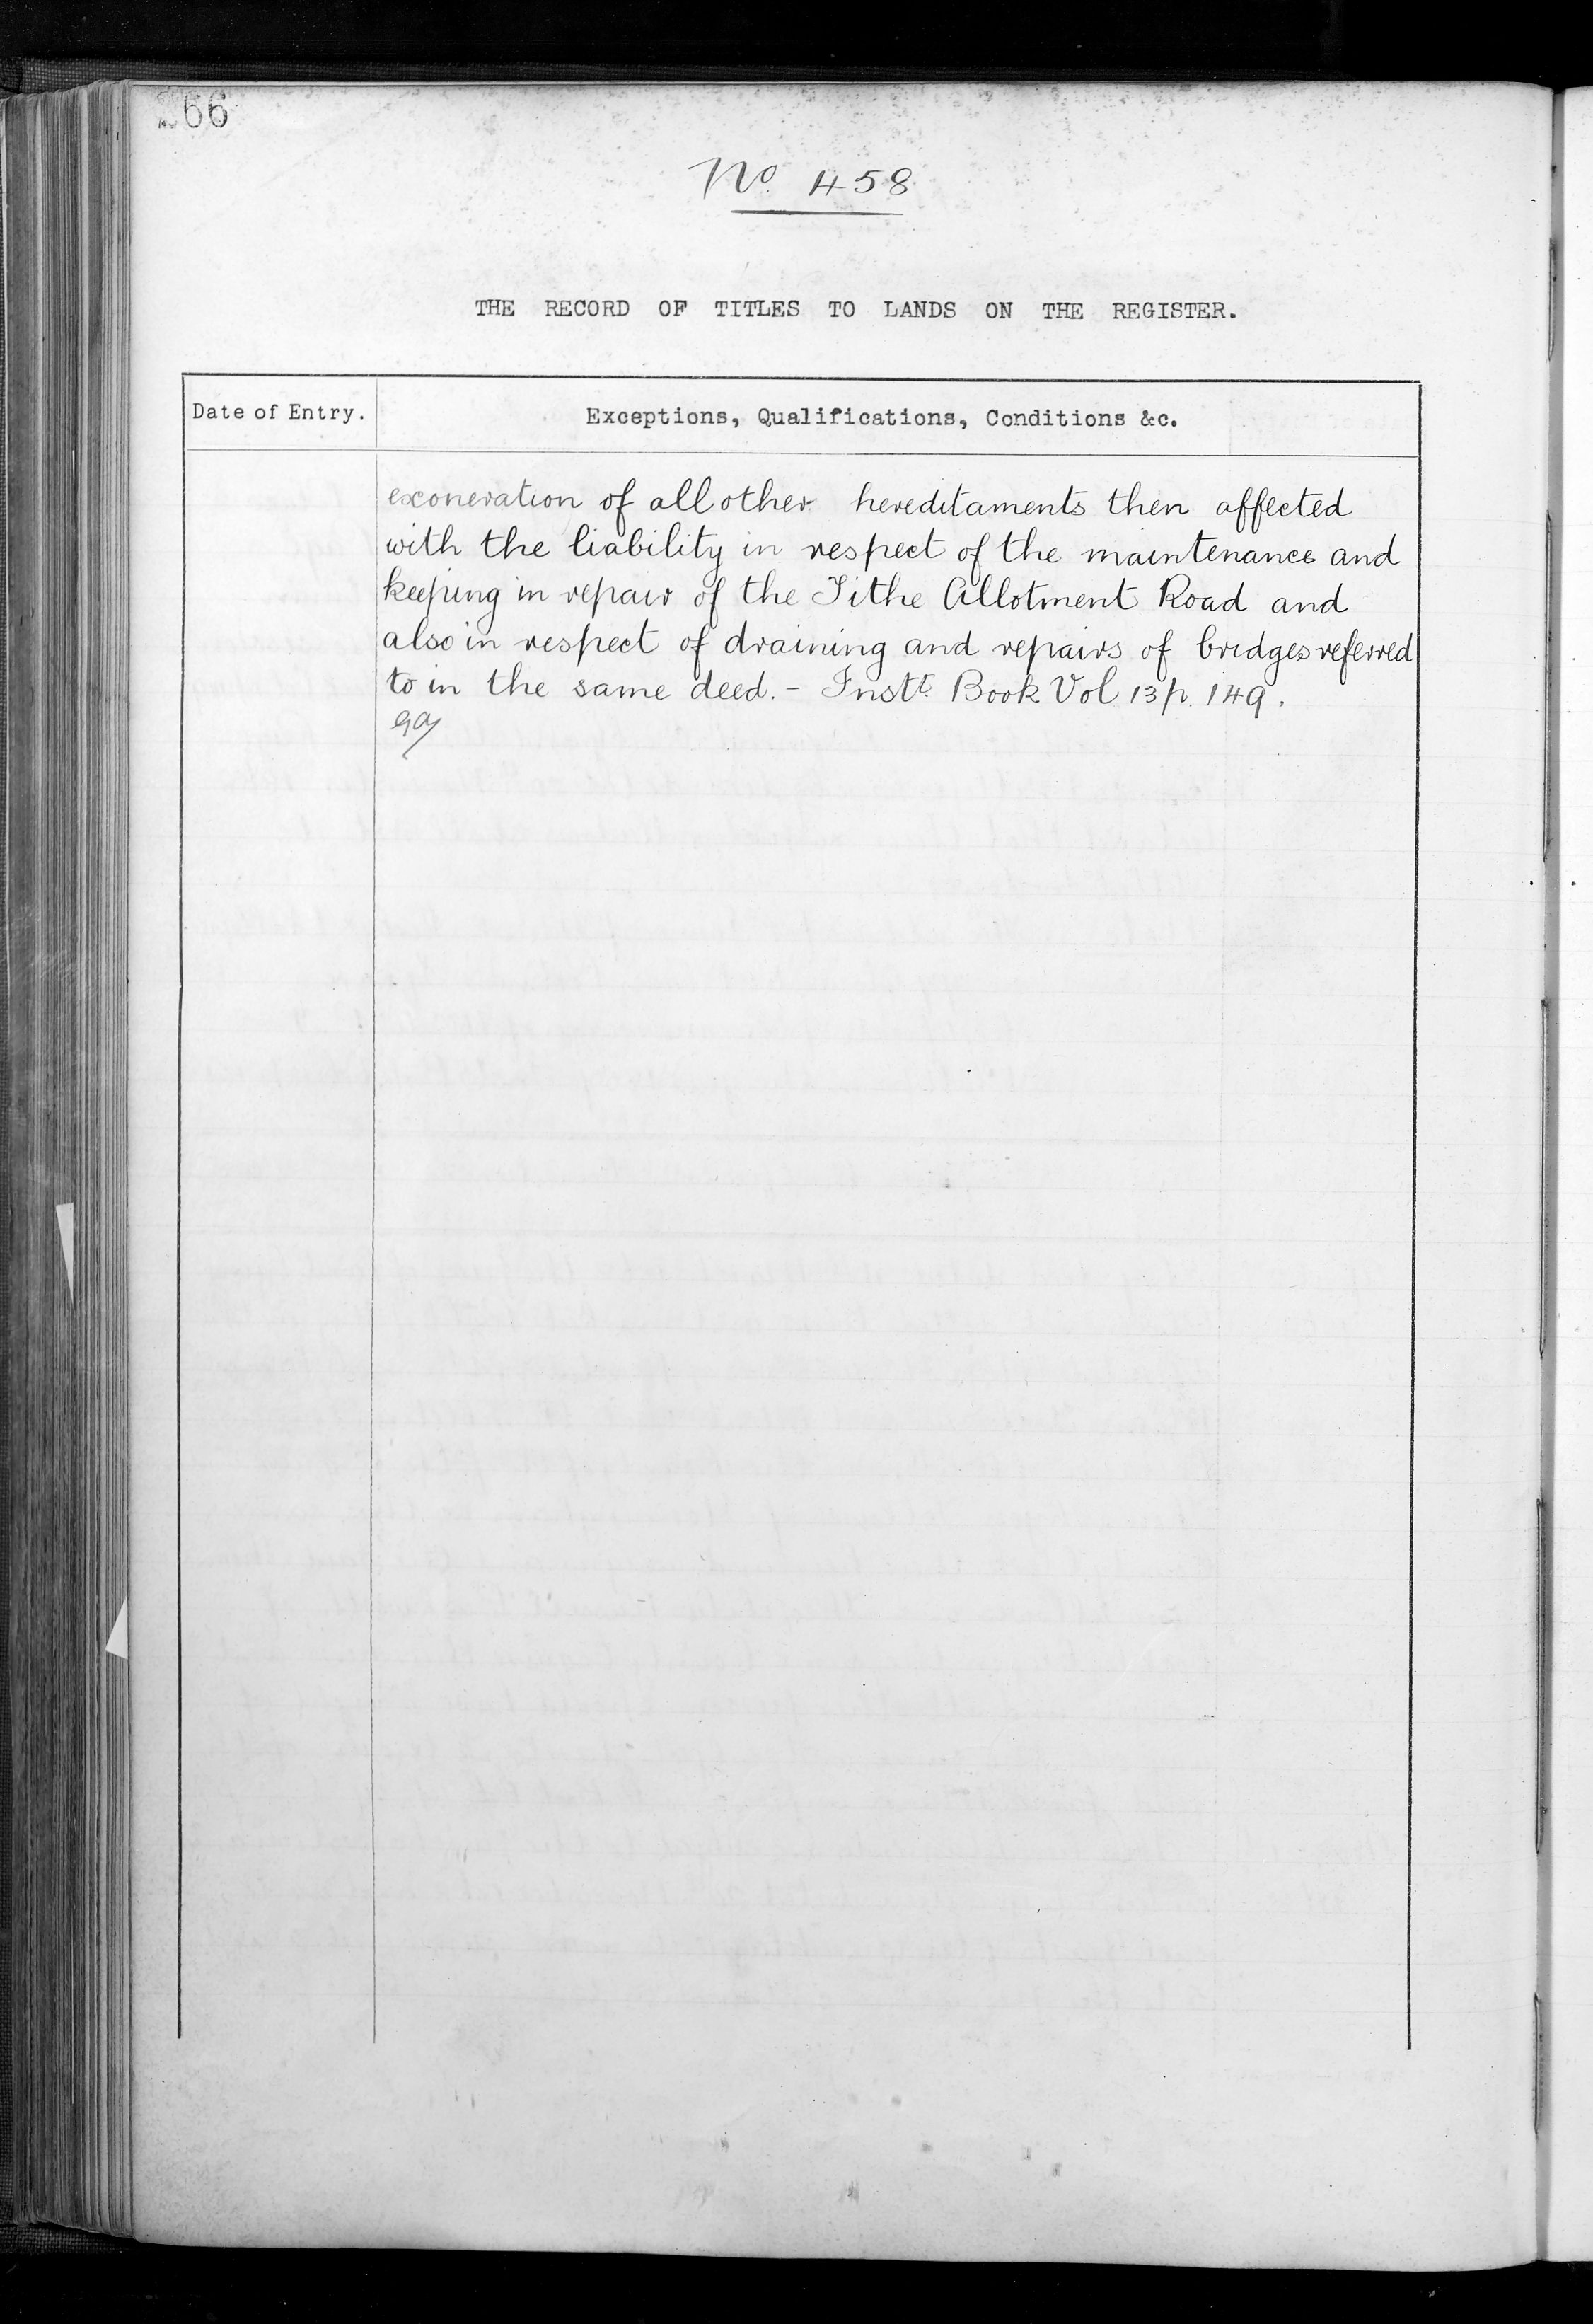 266
No 458
THE RECORD OF TITLES TO LANDS ON THE REGISTER.
Date of Entry. Exceptions, Qualifications, Conditions &c.
exoneration of all other hereditaments then affected
with the liability in respect of the maintenance and
keeping in repair of the Tithe Allotment Road and
also in respect of draining and repairs of bridges referred
to in the same deed. - Instt. Book Vol 13 p. 149.